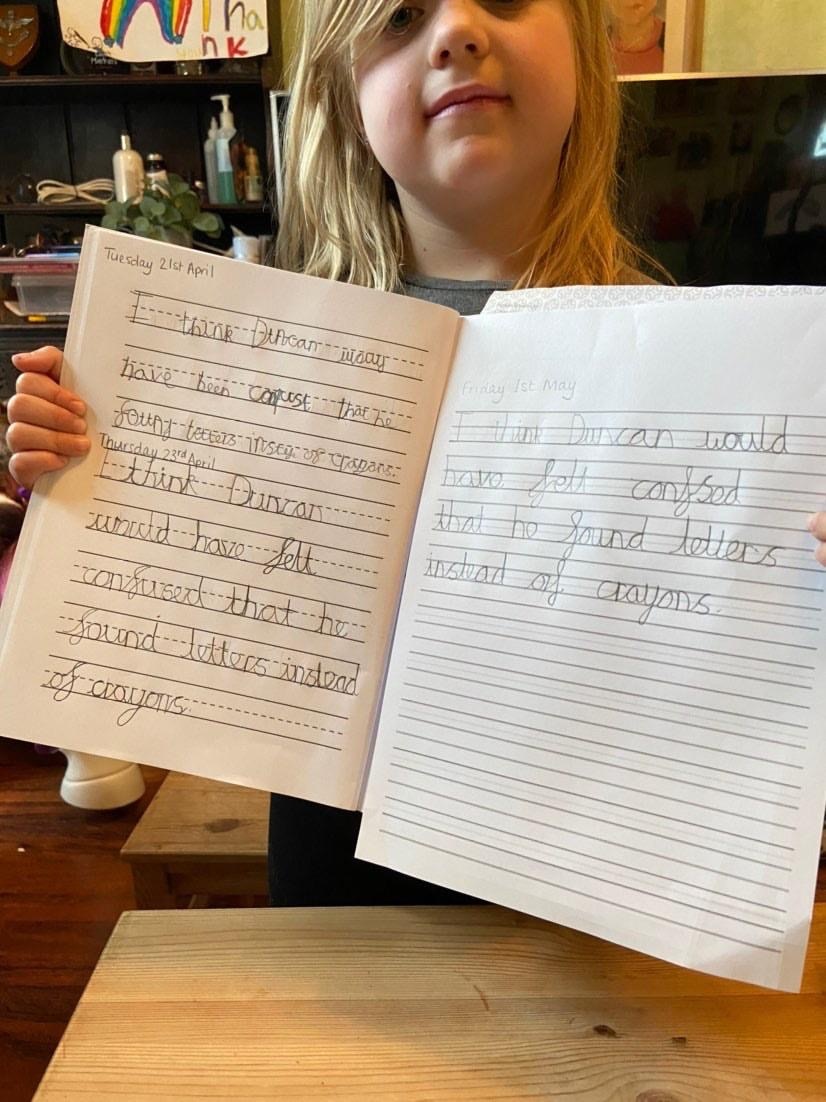 Tha
you
nk
Tuesday 21st April
I think Duncan
have been that he
found letters of
Thursday 23rd April
I think Duncan
would have felt
confused that he
found letters instead
of crayons.
Friday 1st May
I think Duncan would
have felt confsed
that he found letters
instead of crayons.